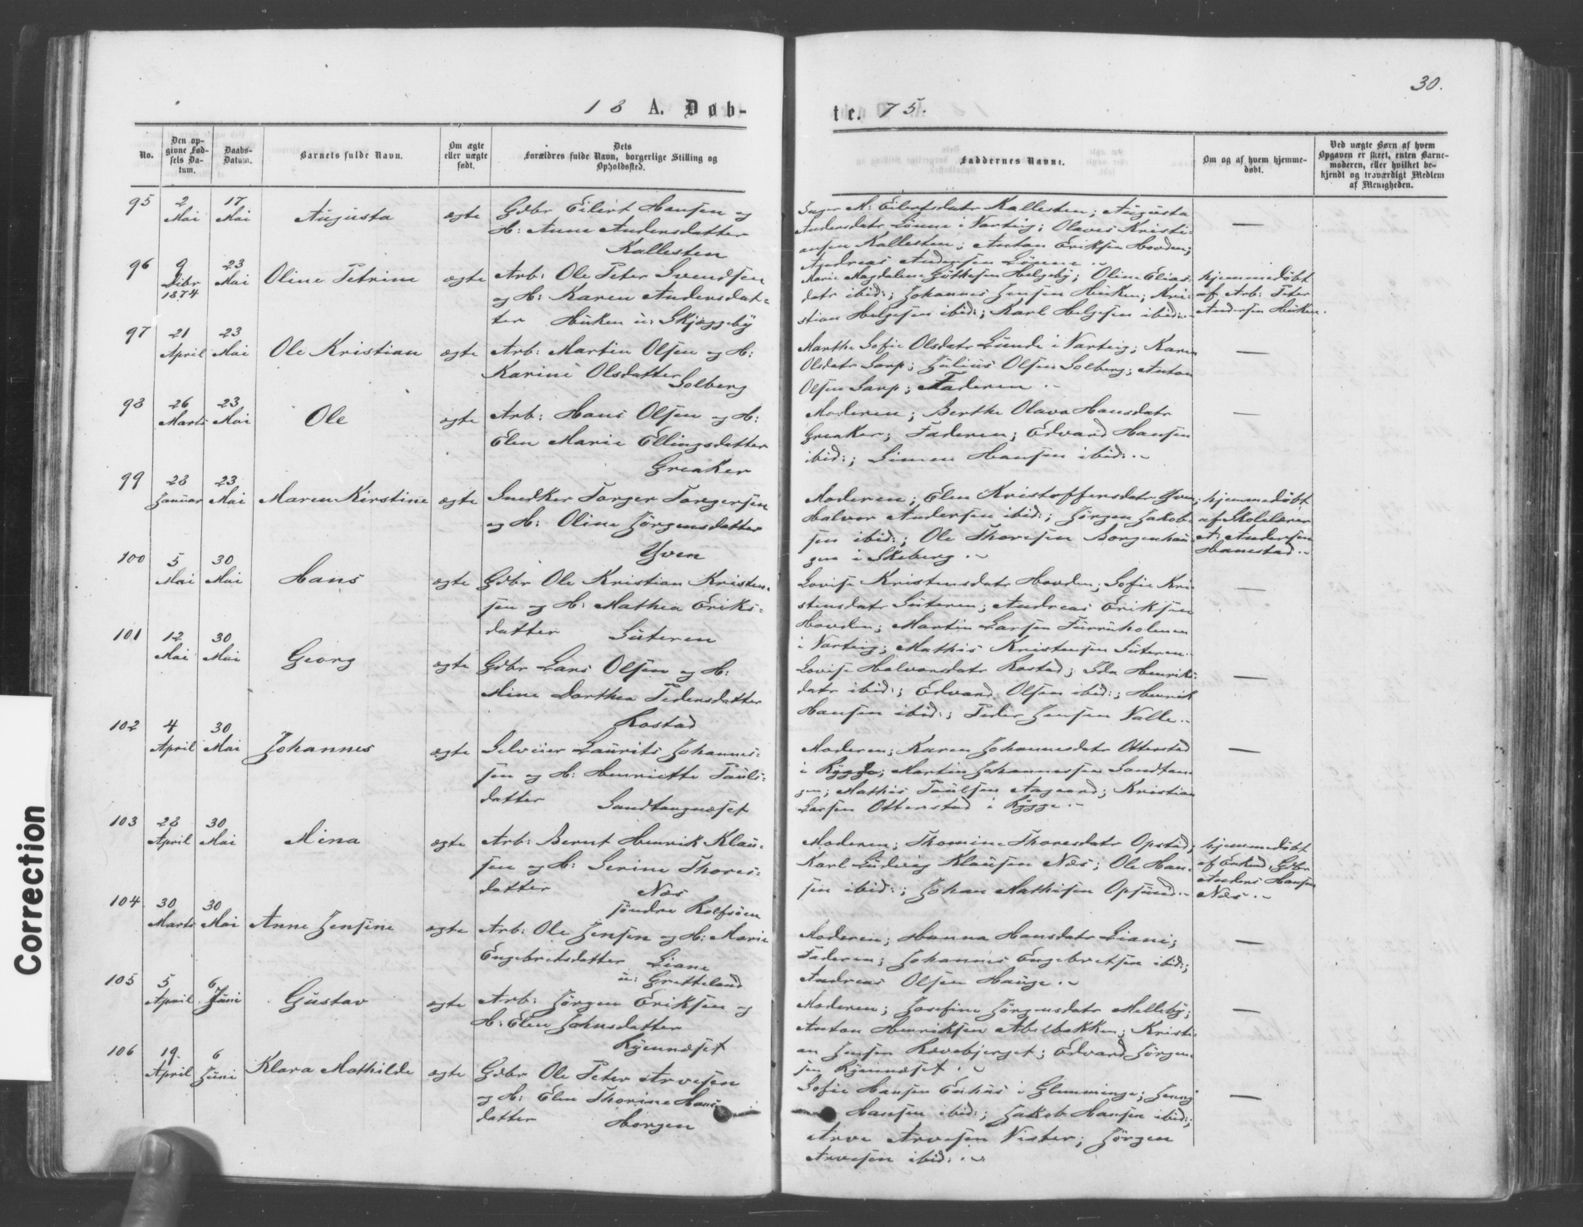 30.
18 A. Døb-
te. 75.
No.
Den op-
givne Fød-
sels Da-
tum.
Daabs-
Datum.
Barnets fulde Navn.
Om ægte
eller uægte
født.
Dets
Forældres fulde Navn, borgerlige Stilling og
Opholdssted.
Faddernes Navne.
Om og af hvem hjemme-
døbt.
Ved uægte Børn af hvem
Opgaven er skeet, enten Barne-
moderen, eller hvilket be-
kjendt og troværdigt Medlem
af Menigheden.
95
2 Mai
17 Mai
Augusta
ægte
Gdbr Eilert Hansen og
H: Anne Andersdatter
Kallesten
Eilertsdatr Kallesten; Augusta
Andersdatr i Varteig; Olaves Kristi-
ansen Kallesten; Anton Eriksen Hovden;
Andreas Andersen
—
96
9 Dcbr 1874
23 Mai
Oline Petrine
ægte
Arb: Ole Peter Svendsen
og H: Karen Andersdat-
ter Huken u: Skjøggeby
Marie Magdalene Helgeby; Oline Elias-
datr ibid:; Johannes Jensen Huken; Kri-
stian Helgesen ibid:; Karl Helgesen ibid:
hjemmedøbt
af Arb: Peter
Andersen Huken.
97
21 April
23 Mai
Ole Kristian
ægte
Arb: Martin Olsen og H:
Karine Olsdatter
Solberg
Marthe Sofie Olsdatr Lunde i Varteig; Karen
Olsdatr Sarp; Julius Olsen Solberg; Anton
Olsen Sarp; Faderen
—
98
26 Marts
23 Mai
Ole
ægte
Arb: Hans Olsen og H:
Elen Marie Ellingsdatter
Greaker
Moderen; Berthe Olava Hansdatr
Greaker; Faderen; Edvard Hansen
ibid:; Simen Hansen ibid:
—
99
28 Januar
23 Mai
Maren Kirstine
ægte
Snedker Torger Torgersen
og H: Oline Jørgensdatter
Yven
Moderen; Elen Kristoffersdatr Yven;
Halvor Andersen ibid:; Jørgen Jakob-
sen ibid:; Ole Thoresen Borgenhau-
gen i Skeberg
hjemmedøbt
af Skolelærer
A: Andersen
Hanestad
100
5 Mai
30 Mai
Hans
ægte
Gdbr Ole Kristian Kristen-
sen og H: Mathea Eriks-
datter Suteren
Lovise Kristensdatr Hovden; Sofie Kri-
stensdatr Suteren; Andreas Eriksen
Hovden; Martin Larsen Furruholmen
i Varteig; Mathis Kristensen Suteren
—
101
12 Mai
30 Mai
Georg
ægte
Gdbr Lars Olsen og H:
Mine Dorthea Pedersdatter
Rostad
Lovise Halvorsdatr Rostad; Ida Henriks-
datr ibid:; Edvard Olsen ibid:; Henrik
Hansen ibid:; Peder Jensen Valle
—
102
4 April
30 Mai
Johannes
ægte
Selveier Laurits Johannes-
sen og H: Henriette Pauls-
datter Sandtangneset
Moderen; Karen Johannesdatr Otterstad
i Rygge; Martin Johannessen Sandtan-
gen; Mathis Paulsen Aagaard; Kristian
Larsen Otterstad i Rygge
—
103
28 April
30 Mai
Mina
ægte
Arb: Bernt Henrik Klau-
sen og H: Serine Thores-
datter Næs
søndre Rolfsøen
Moderen; Thomine Thoresdatr Opstad;
Karl Ludvig Klausen Næs; Ole Han-
sen ibid:; Johan Mathisen Opsund
hjemmedøbt
af Gdbr
Anders Hansen
Næs
104
30 Marts
30 Mai
Anne Jensine
ægte
Arb: Ole Jensen og H: Marie
Engebretsdatter Liane
u: Gretteland
Moderen; Hanna Hansdatr Liane;
Faderen; Johannes Engebretsen ibid:;
Andreas Olsen Hauge
—
105
5 April
6 Juni
Gustav
ægte
Arb: Jørgen Eriksen og
H: Elen Johnsdatter
Rjumnæset
Moderen; Josefine Jørgensdatr Melleby;
Anton Henriksen Abelbakken; Kristi-
an Jensen Rævebjerget; Edvard Jørgen-
sen Rjumnæset
—
106
19 April
6 Juni
Klara Mathilde
ægte
Gdbr Ole Peter Arvesen
og H: Elen Thorine Hans-
datter Horgen
Sofie Hansen Enhus i Glemminge; Jenny
Hansen ibid:; Jakob Hansen ibid:;
Arve Arvesen Vister; Jørgen
Arvesen ibid:
—
Correction